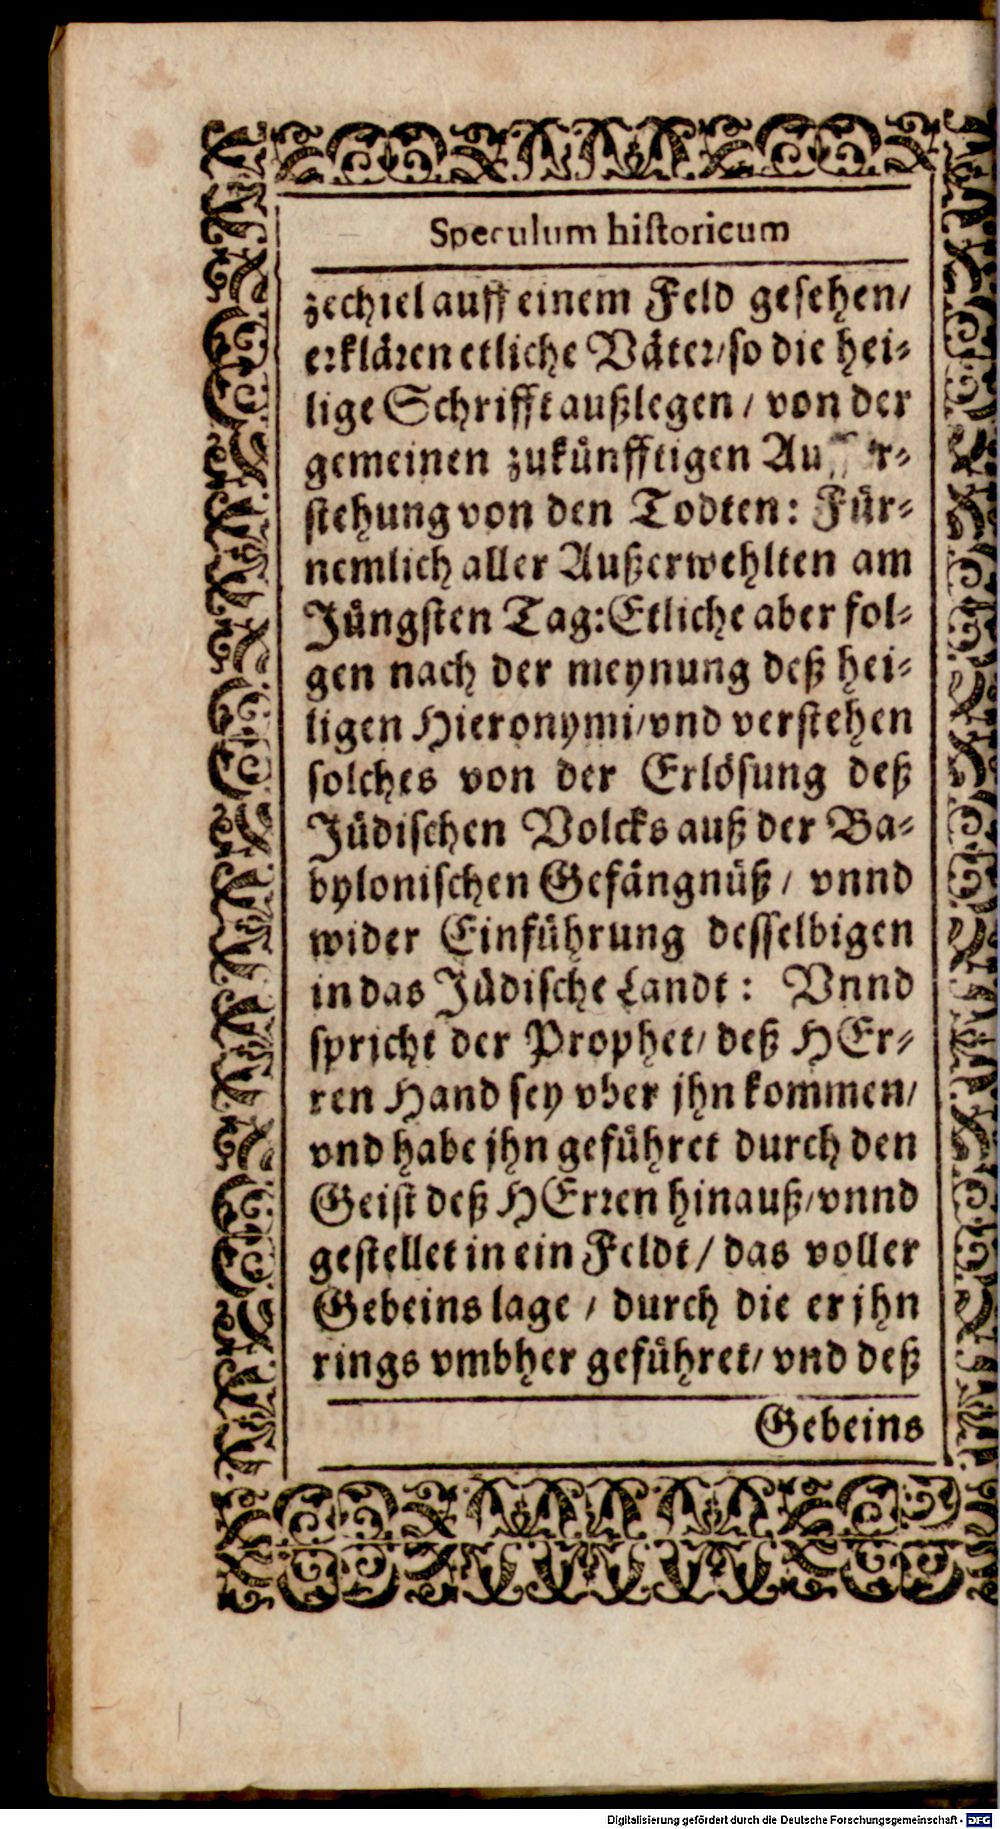 Speculum historicum
zechiel auff einem Feld gesehen/
erklären etliche Väter/so die hei-
lige Schrifft außlegen / von der
gemeinen zukünfftigen
stehung von den Todten: Für-
nemlich aller Außerwehlten am
Jüngsten Tag:Etliche aber fol-
gen nach der meynung deß hei-
ligen Hieronymi/vnd verstehen
solches von der Erlösung deß
Jüdischen Volcks auß der Ba-
bylonischen Gefängnüß / vnnd
wider Einführung desselbigen
in das Jüdische Landt : Vnnd
spricht der Prophet/ deß HEr-
ren Hand sey vber jhn kommen/
vnd habe jhn geführet durch den
Geist deß HErren hinauß/vnnd
gestellet in ein Feldt / das voller
Gebeins lage / durch die er jhn
rings vmbher geführet/ vnd deß
Gebeins
Digitalisierung gefördert durch die Deutsche Forschungsgemeinschaft - DFG